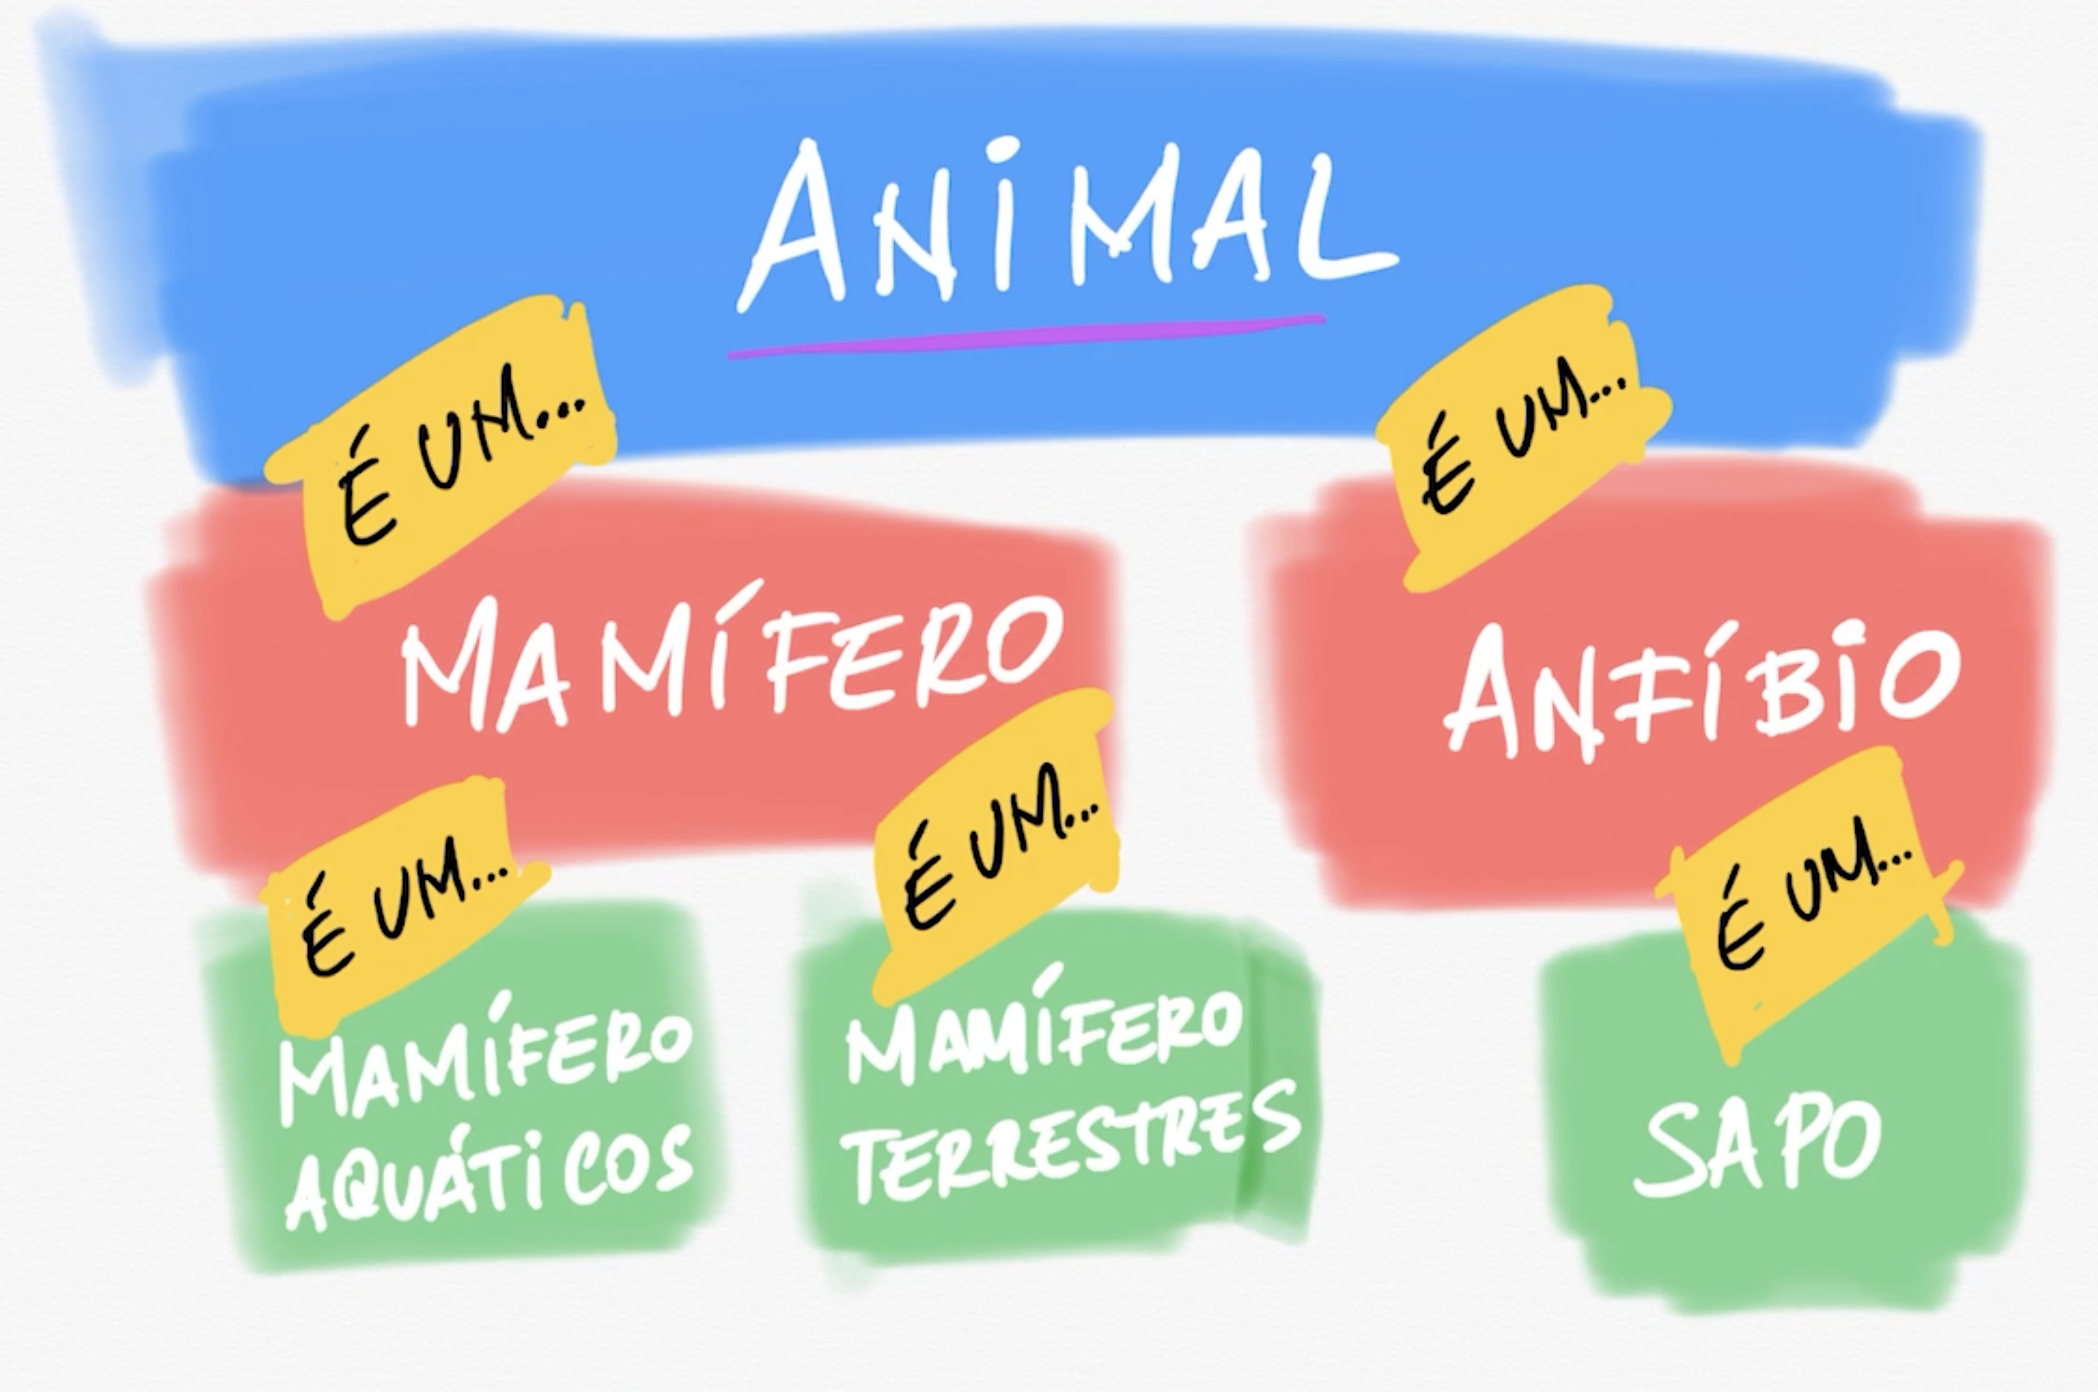 ANIMAL
É UM...
É UM...
MAMÍFERO
ANFÍBIO
É UM...
É UM...
É UM...
MAMÍFERO
AQUÁTICOS
MAMÍFERO
TERRESTRES
SAPO